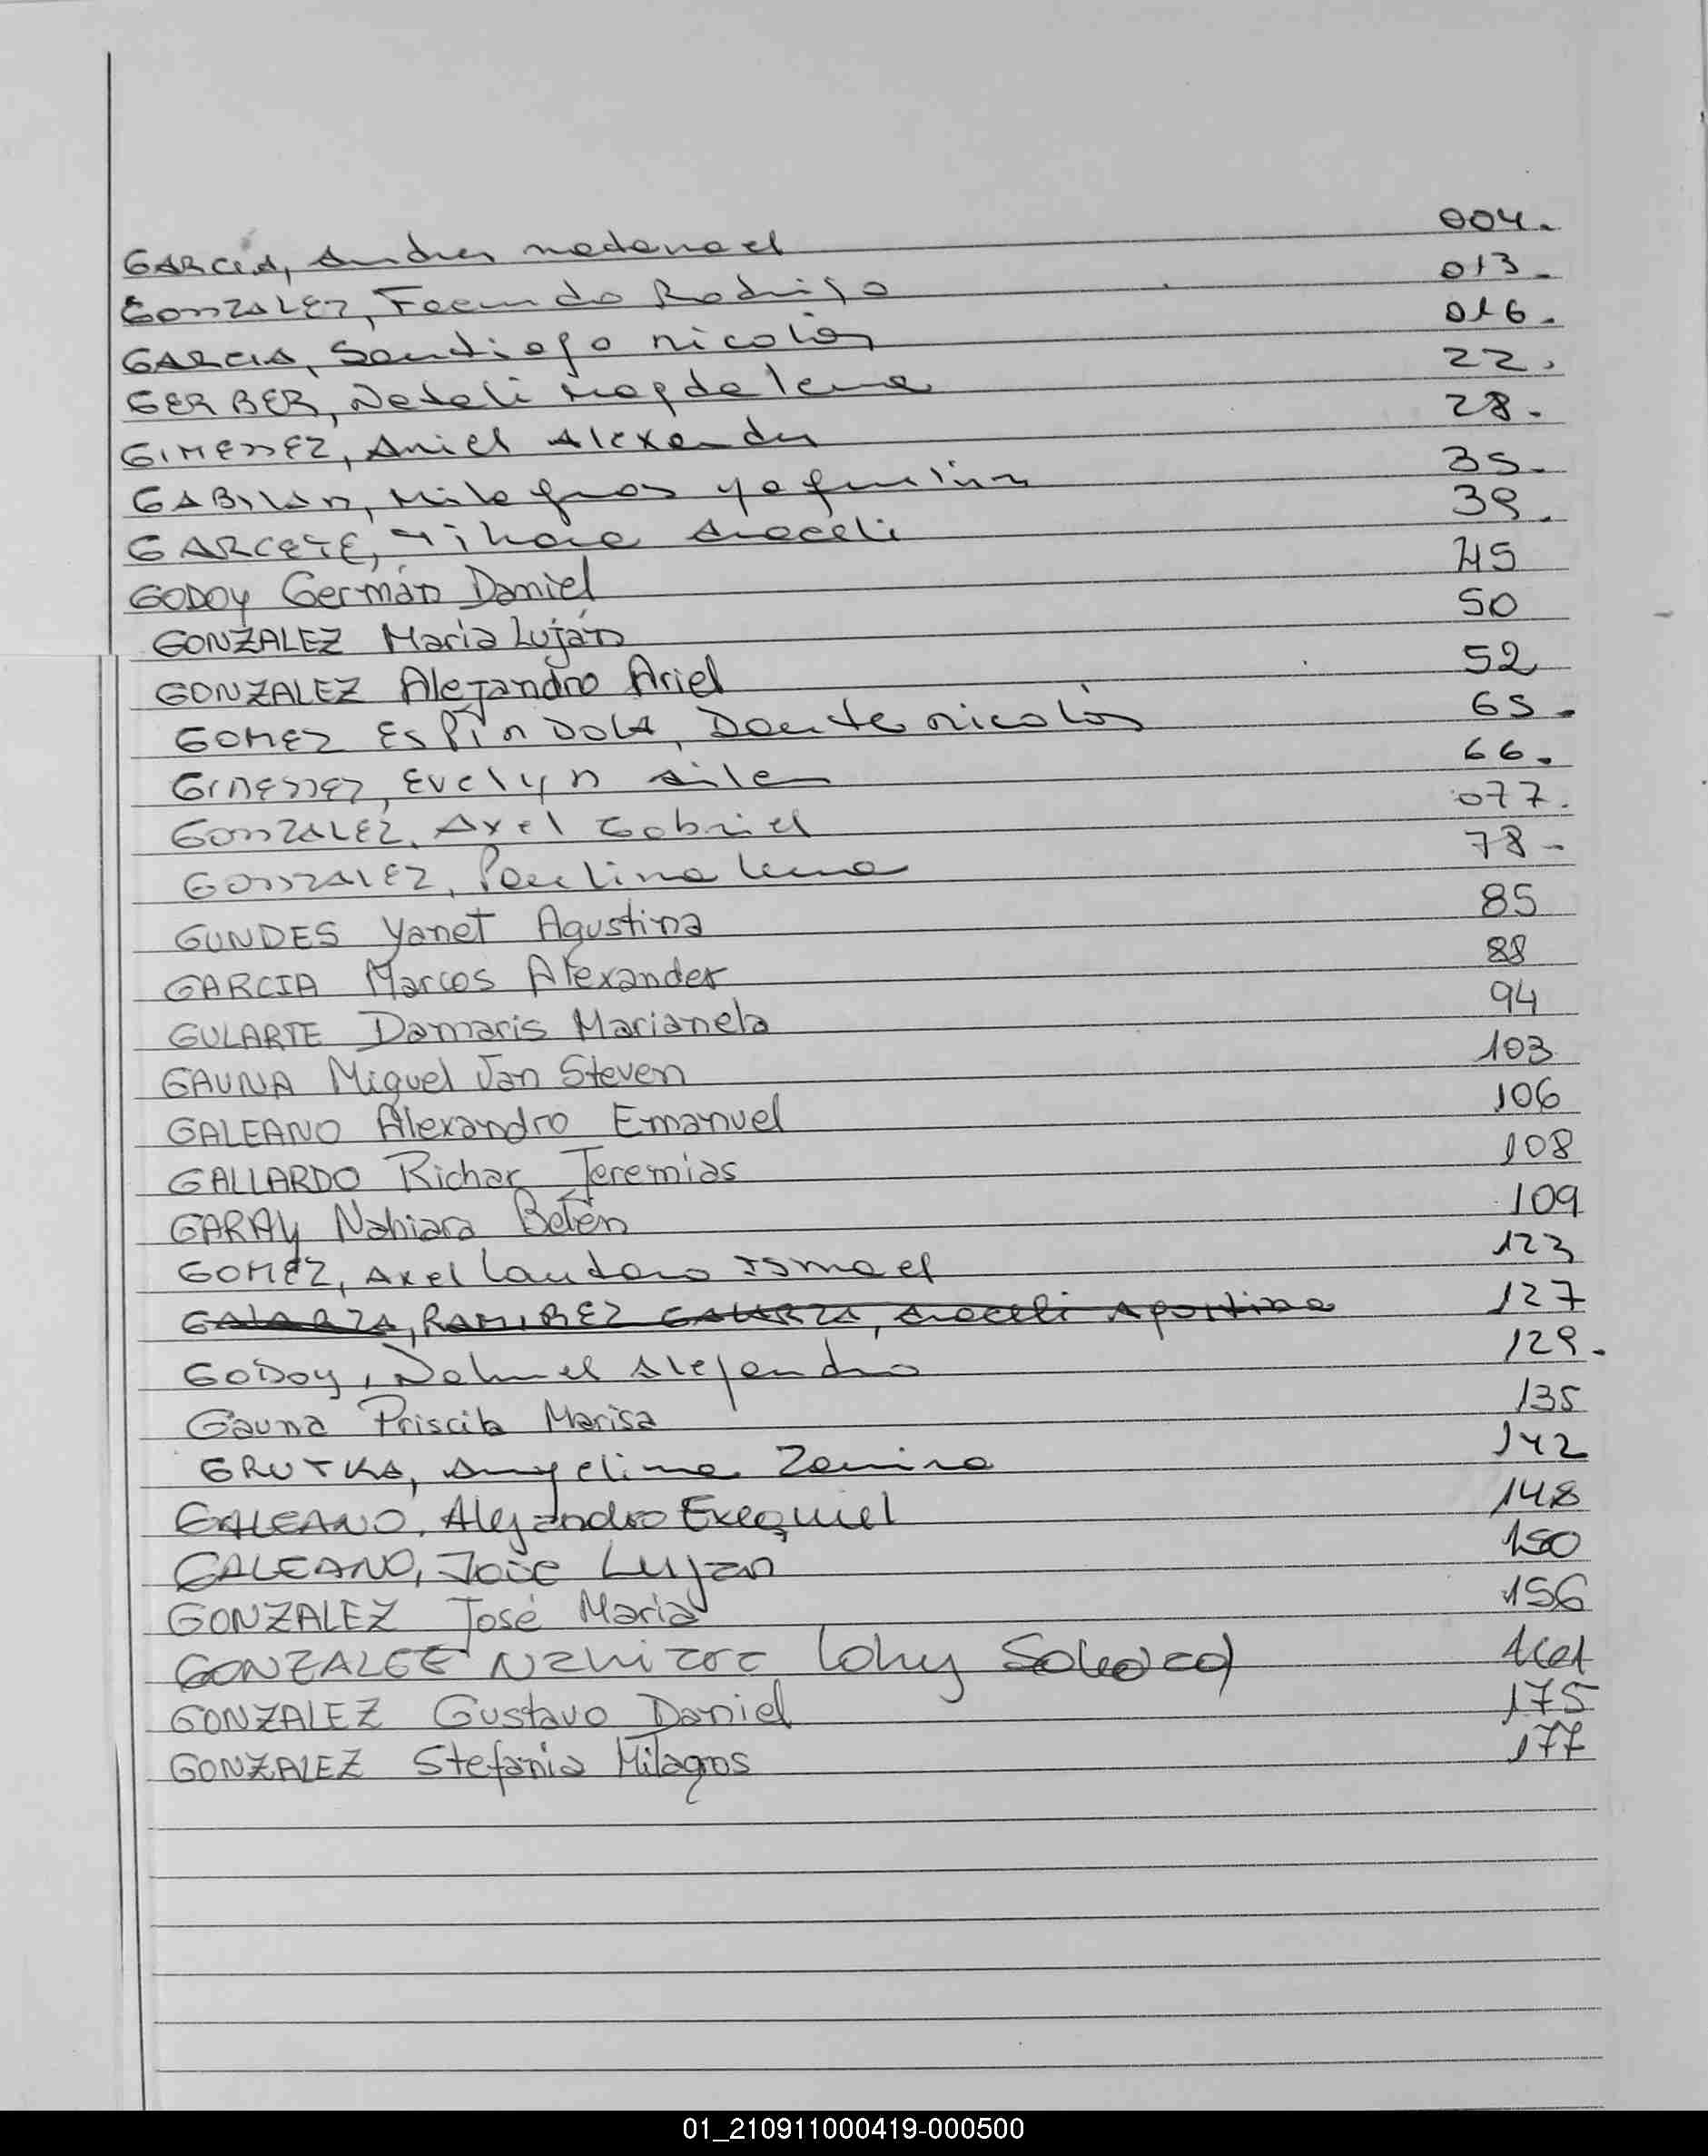 GARCIA, Andres Natanael 004.
GONZALEZ, Facundo Rodrigo 013.
GARCIA, Santiago Nicolás 016.
GERBER, Natali Magdalena 22.
GIMENEZ, Ariel Alexander 28.
GABILAN, Milagros Yaquelin 35.
GARCETE, Tihara Araceli 39.
GODOY Germán Daniel 45
GONZALEZ Maria Luján 50
GONZALEZ Alejandro Ariel 52
GOMEZ ESPINDOLA, Dante Nicolás 65.
GIMENEZ, Evelyn Ailen 66.
GONZALEZ, Axel Gabriel 077.
GONZALEZ, Paulina Luna 78-
GUNDES Yanet Agustina 85
GARCIA Marcos Alexander 88
GULARTE Damaris Marianela 94
GAUNA Miguel Jan Steven 103
GALEANO Alexandro Emanuel 106
GALLARDO Richar Jeremias 108
GARAY Nahiara Belén 109
GOMEZ, Axel Lautaro Ismael 123
GALARZA, RAMIREZ GALARZA, Araceli Agostina 127
GODOY, Nahuel Alejandro 129.
Gauna Priscila Marisa 135
GRUTKA, Angelina Zamira 142
GALEANO, Alejandro Exequiel 148
GALEANO, José Lujan 150
GONZALEZ José Maria 156
GONZALEZ Nahiara Soledad 161
GONZALEZ Gustavo Daniel 175
GONZALEZ Stefania Milagros 177
01_210911000419-000500